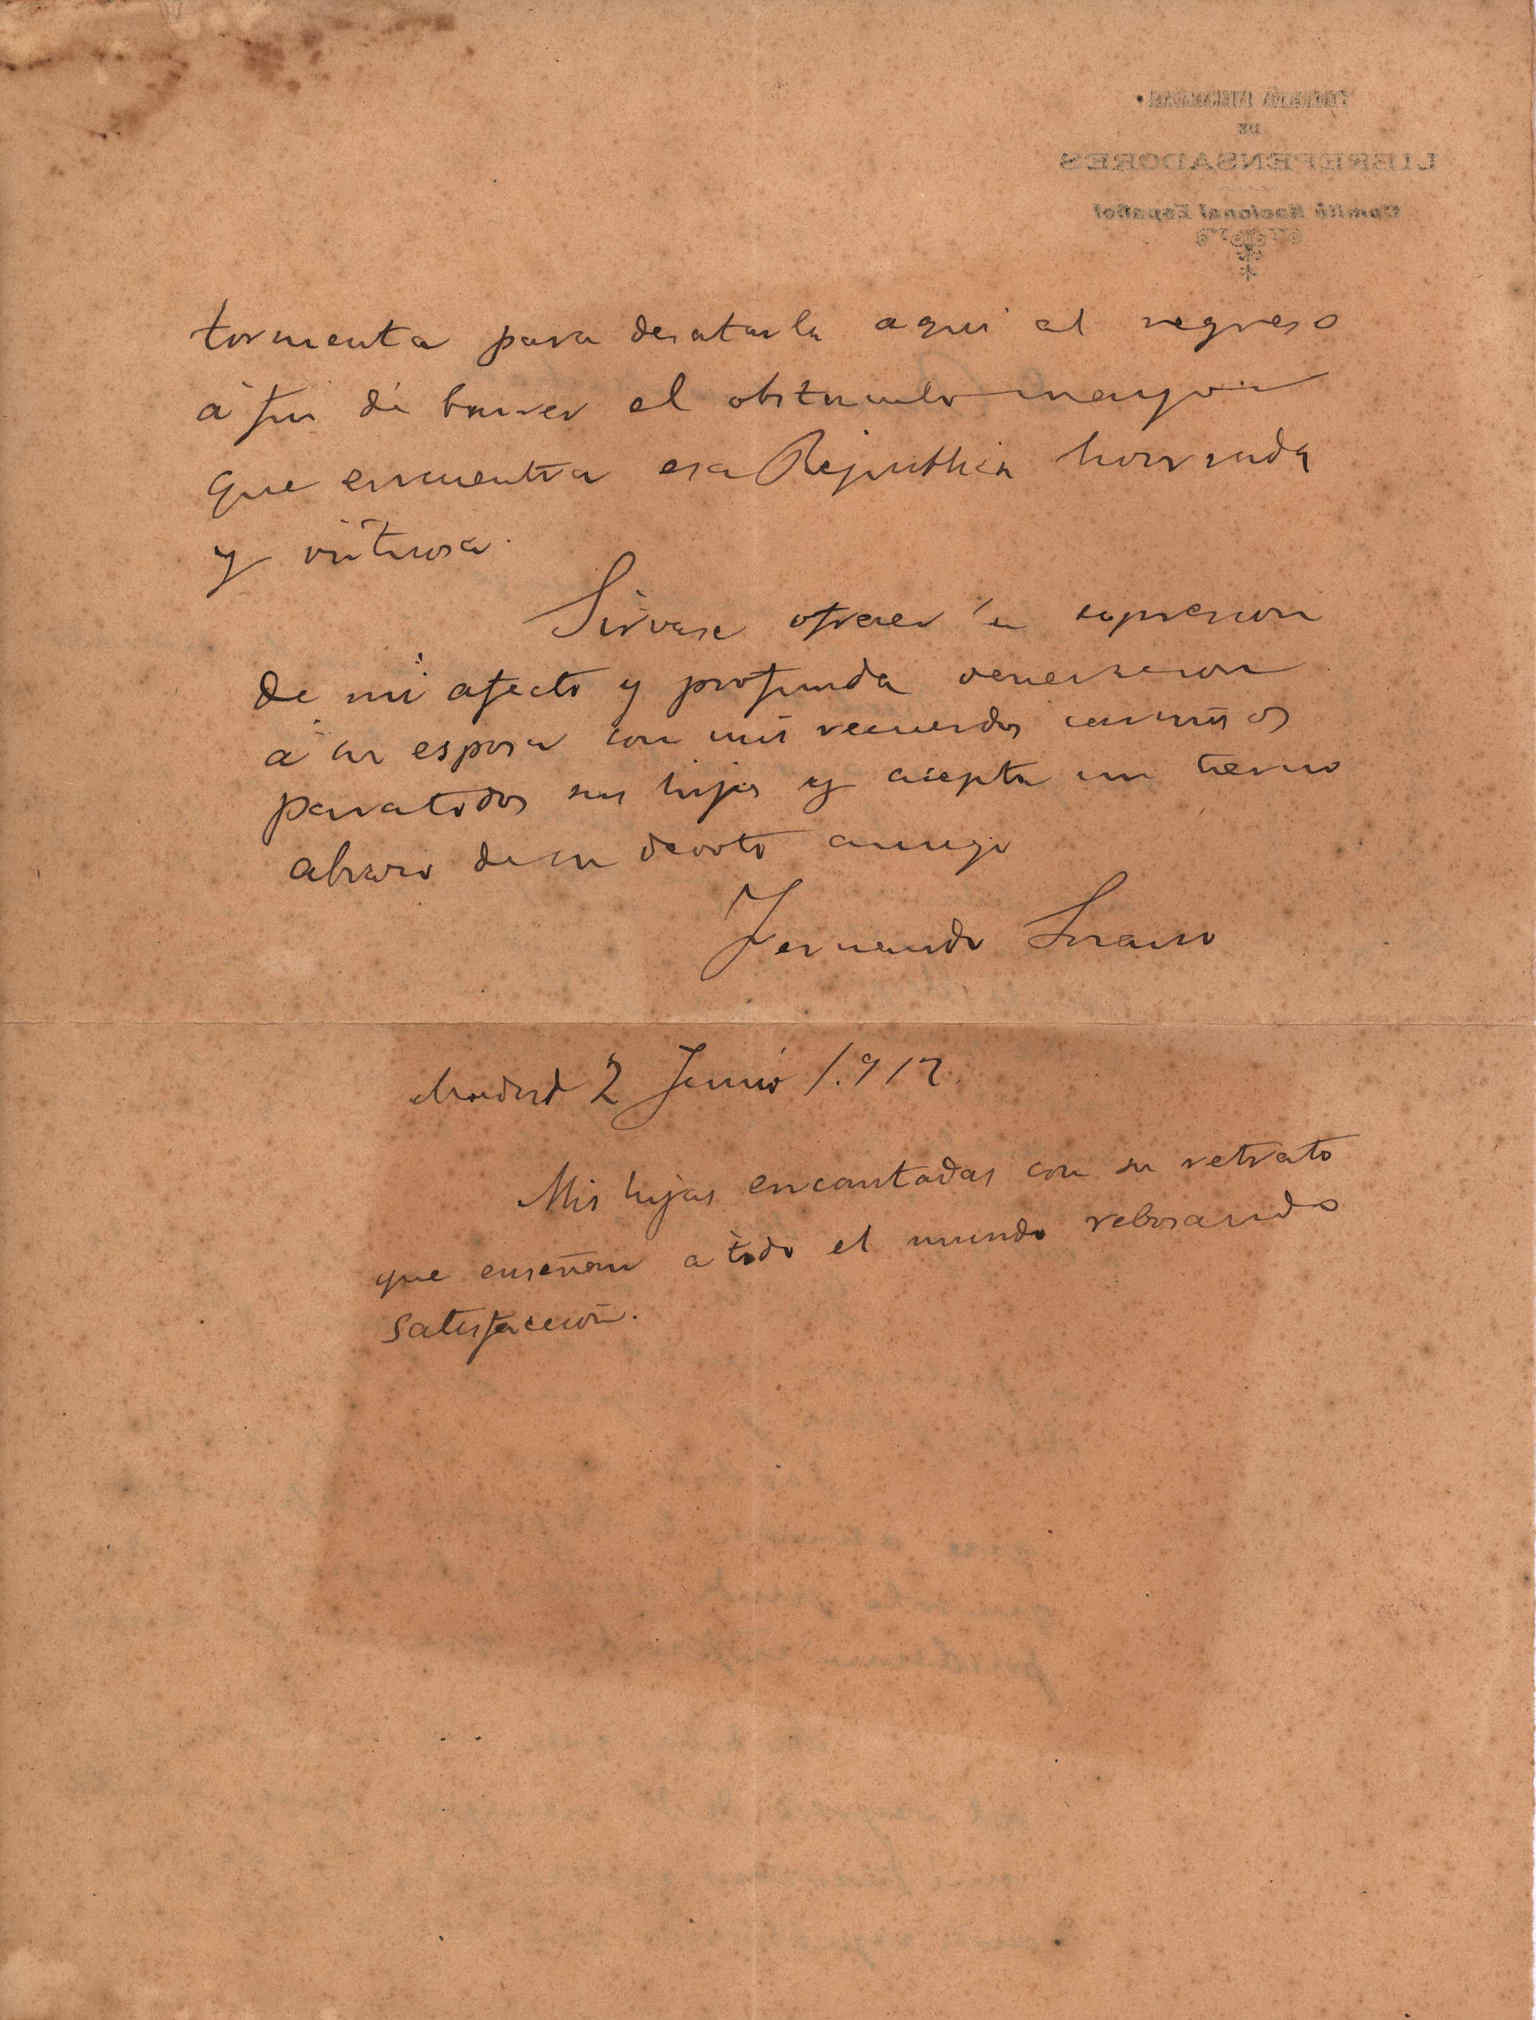 FEDERACIÓN INTERNACIONAL
DE
LIBREPENSADORES
Comité Nacional Español
tormenta para desatarla aqui al regreso
á fin de barrer el obstaculo mayor
que encuentra esa Republica honrada
y virtuosa.
Sirvase ofrecer la expresion
de mi afecto y profunda veneracion
á su esposa con mis recuerdos cariñosos
para todos sus hijos y acepte un tierno
abrazo de su devoto amigo
Fernando Lozano
Madrid 2 Junio 1.912.
Mis hijas encantadas con su retrato
que enseñan a todo el mundo rebosando
satisfacción.